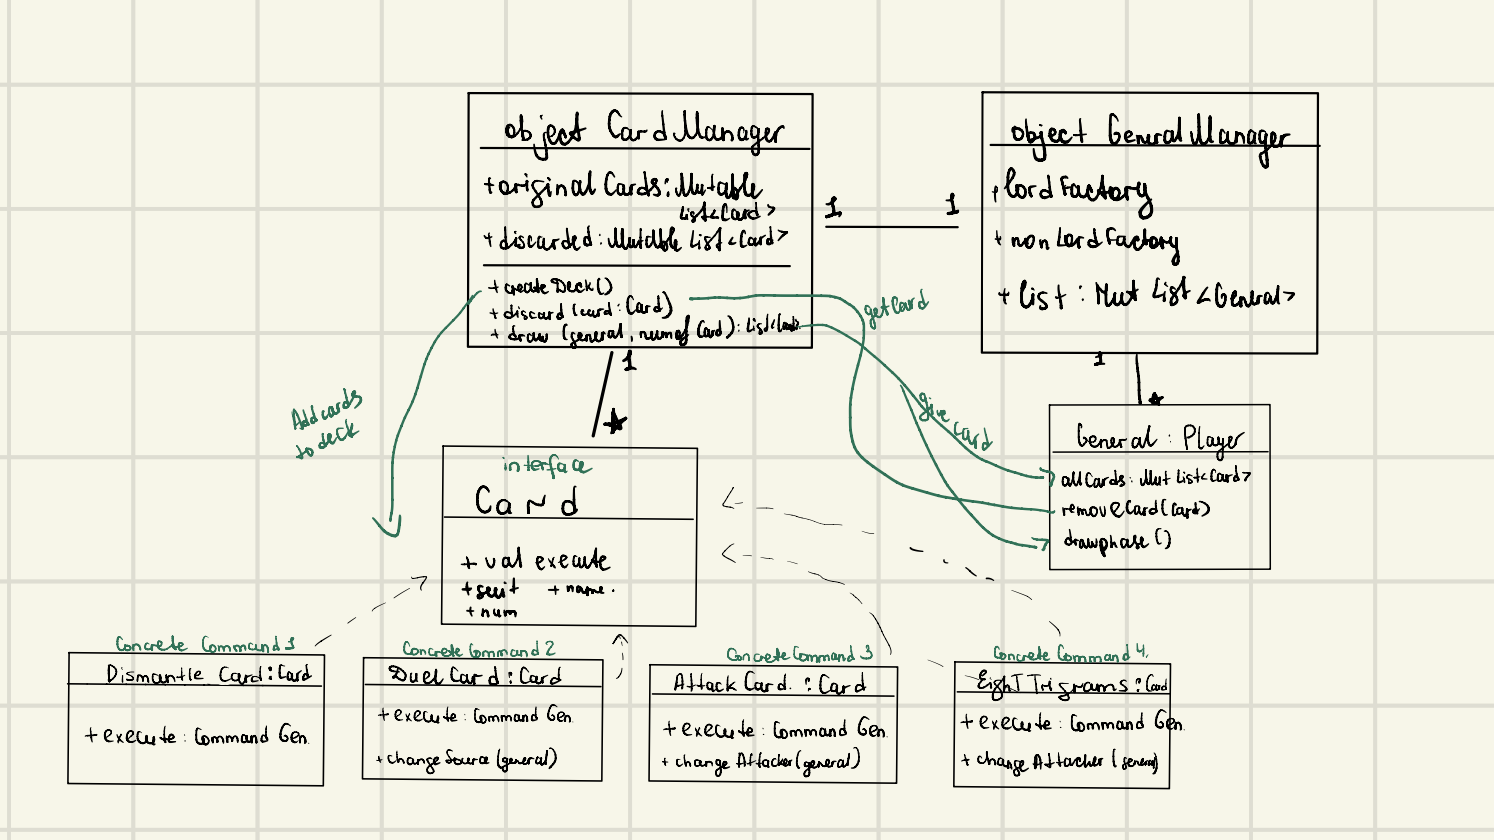 object CardManager
+originalCards:Mutable
List<Card>
+ discarded: Mutable List<Card>
+ createDeck()
+ discard (card: Card)
+ draw (general, numof Card): List<Card>
1
1
1
*
object GeneralManager
+lordFactory
+ nonLordFactory
+ list : Mut List <General>
1
*
getCard
give card
Add cards
to deck
General : Player
allCards: Mut List<Card>
removeCard(Card)
drawphase()
interface
Card
+ val execute
+suit + name.
+ num
Concrete Command 1
Dismantle Card:Card
+ execute: Command Gen.
Concrete Command 2
Duel Card : Card
+ execute: Command Gen
+ change Source (general)
Concrete Command 3
Attack Card. : Card
+ execute: Command Gen
+ change Attacker (general)
Concrete Command 4.
EighT Trigrams : Card
+ execute: Command Gen
+ change Attacher (general)